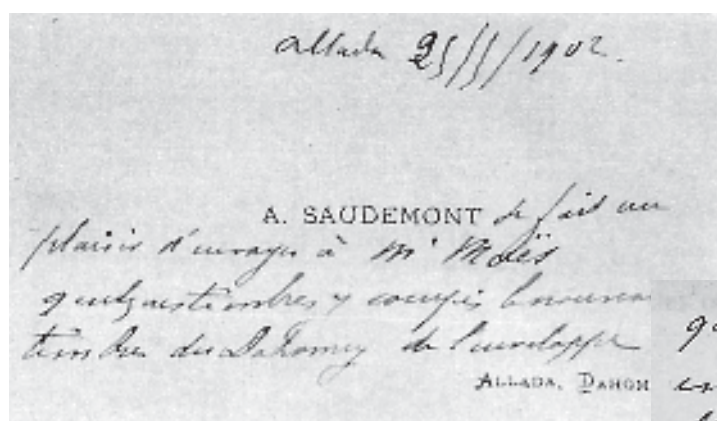 Allada 25/5/1902.
A. SAUDEMONT se fait un
plaisir d'envoyer à Mr Moës
quelques timbres y compris le nouveau
timbre du Dahomey de l'enveloppe
ALLADA, DAHOM